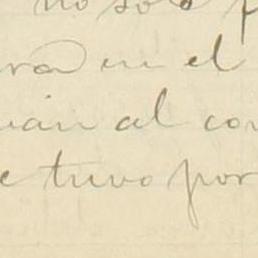 no solo p
ra en el
uán al con
e tuvo por